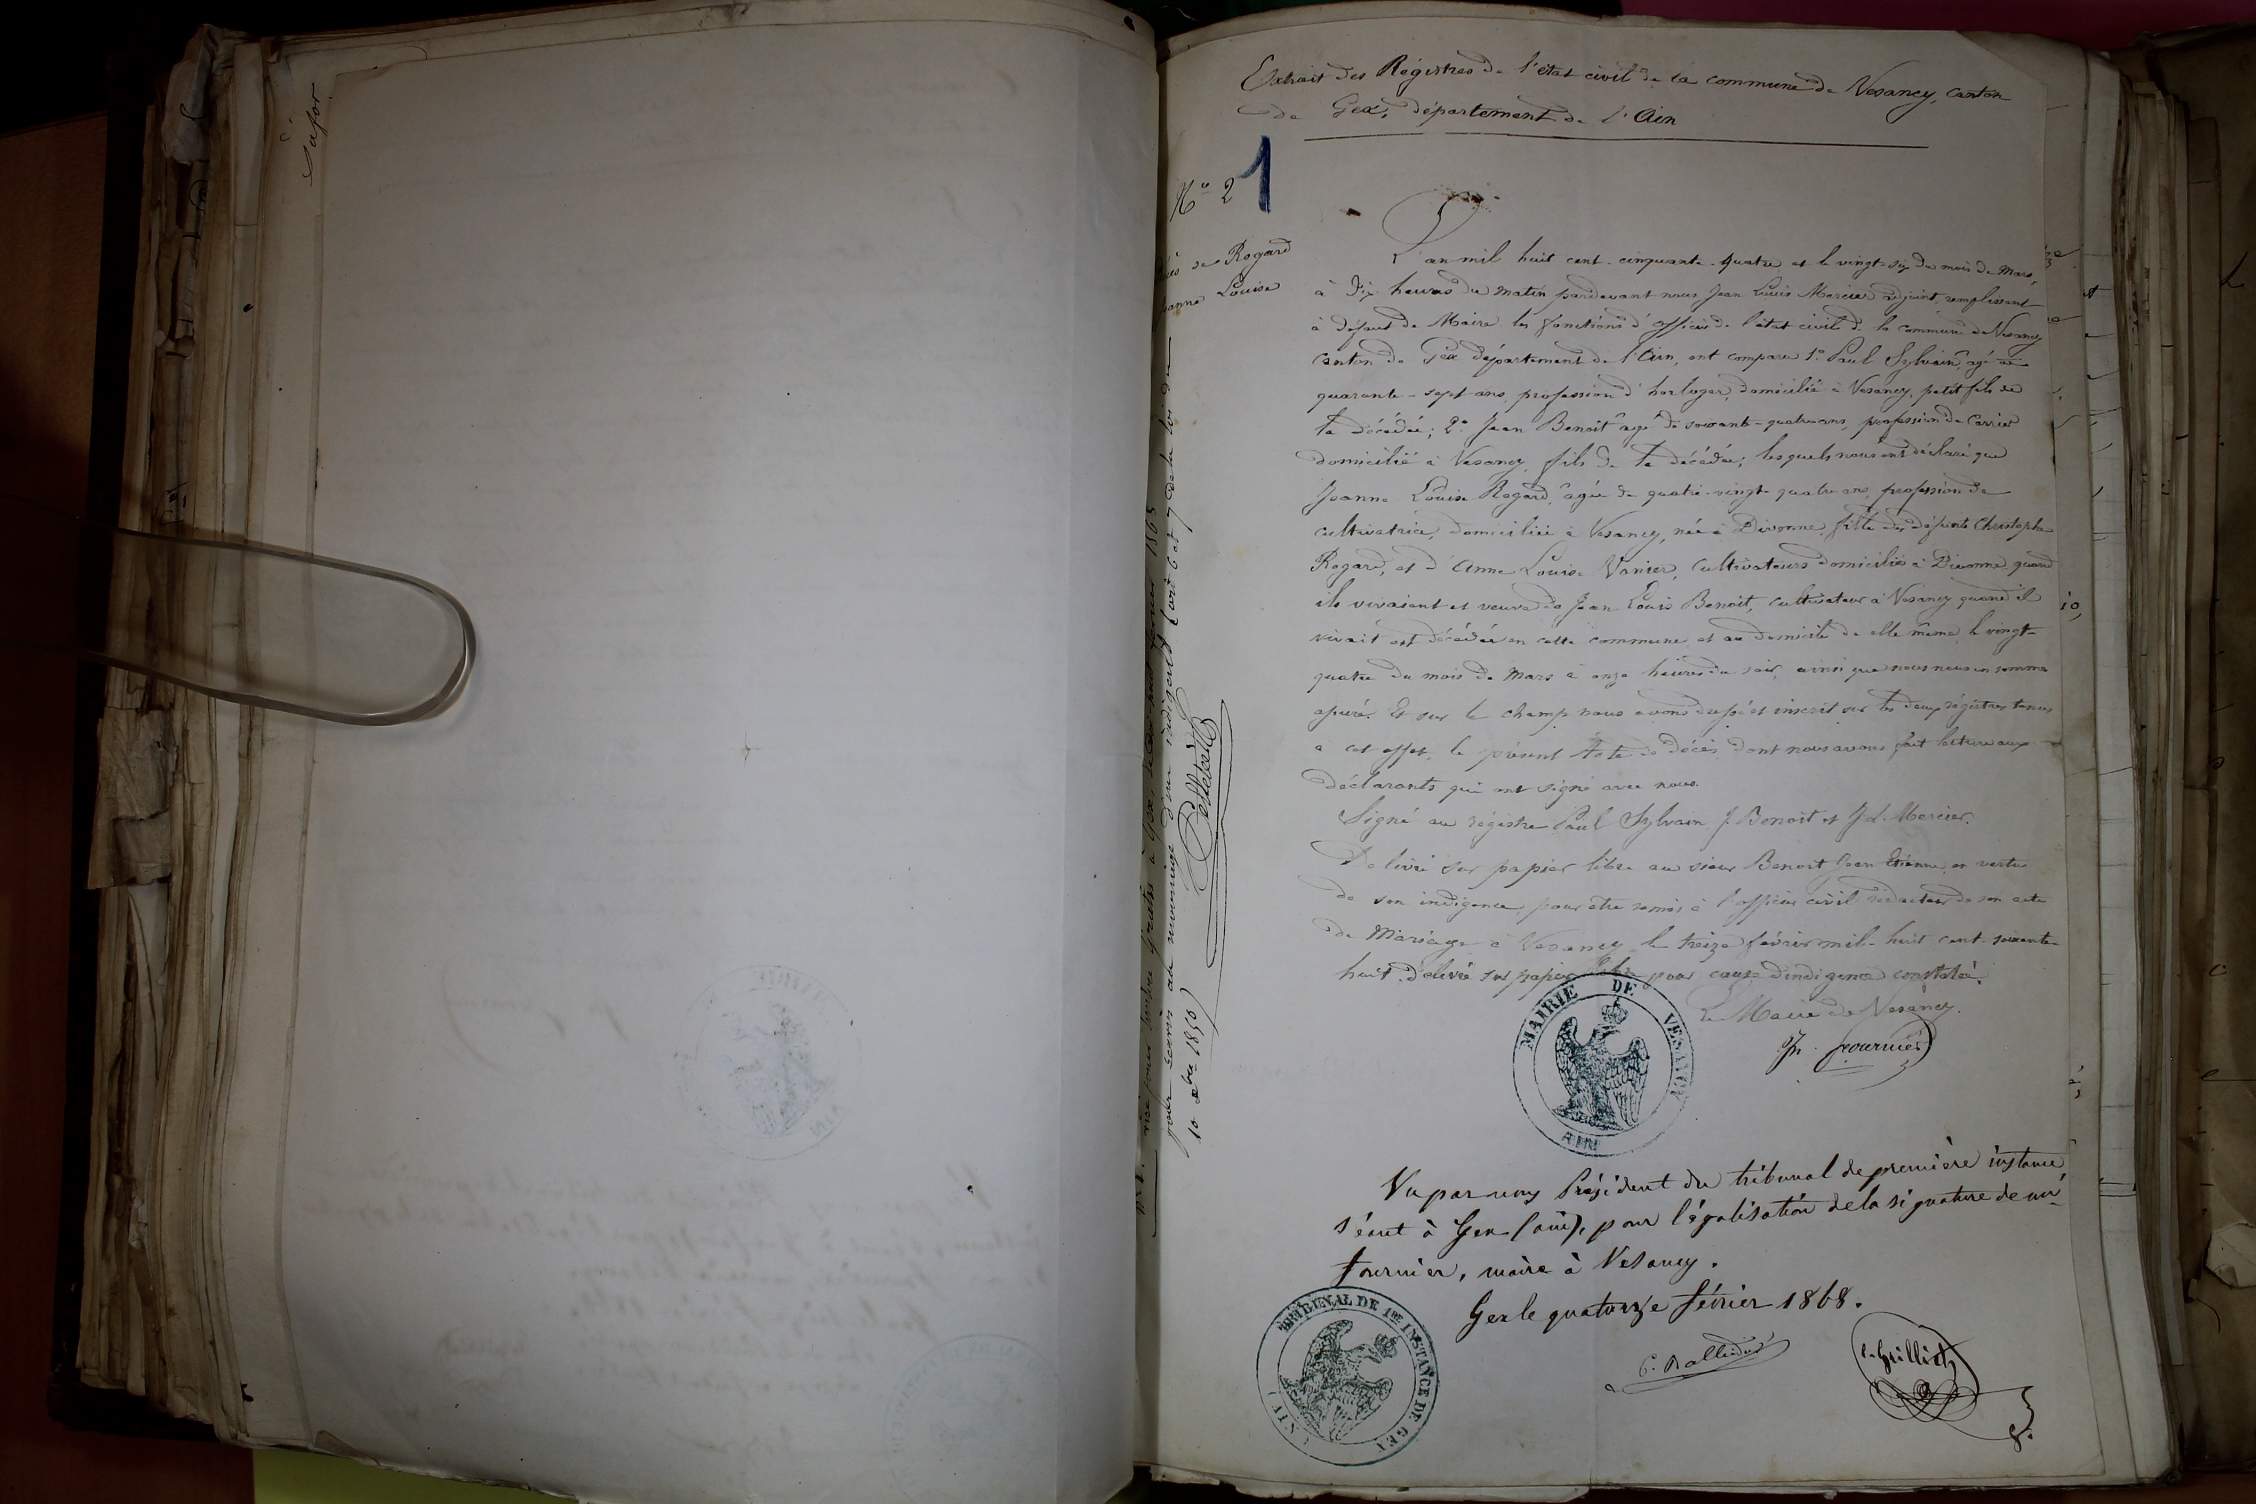 Extrait des Régistres de l'état civil de la commune de Vesancy, canton
de Gex, département de l'Ain
N° 2
1
de Regard
Jeanne Louise
L'an mil huit cent cinquante-quatre et le vingt-six du mois de Mars,
à dix heures du matin pardevant nous Jean Louis Mercier adjoint remplissant
à défaut de Maire les fonctions d'officier de l'état civil de la commune de Vesancy
canton de Gex département de l'Ain, ont comparu 1° Paul Sylvain âgé de
quarante-sept ans, profession d'horloger, domicilié à Vesancy, petit fils de
la décédée; 2° Jean Benoit âgé de soixante-quatre ans, profession de Carrier
domicilié à Vesancy, fils de la décédée; lesquels nous ont déclaré que
Jeanne Louise Regard, âgée de quatre-vingt-quatre ans, profession de
cultivatrice, domiciliée à Vesancy, née à Divonne, fille des défunts Christophe
Regard, et d'Anne Louise Vanier, Cultivateurs domiciliés à Divonne quand
ils vivaient et veuve de Jean Louis Benoit, cultivateur à Vesancy quand il
vivait est décédée en cette commune et au domicile de elle même, le vingt-
quatre du mois de Mars à onze heures du soir, ainsi que nous nous en somme
assuré. Et sur le champ nous avons dressé et inscrit sur les deux régistres tenus
a cet effet, le présent Acte de décès, dont nous avons fait lecture aux
déclarants qui ont signé avec nous.
Signé au régistre Paul Sylvain, J. Benoit et J. L. Mercier.
Délivré sur papier libre au sieur Benoit Jean Etienne, en vertu
de son indigence, pour être remis à l'officier civil rédacteur de son acte
de Mariage à Vesancy le treize février mil-huit cent soixante-
huit. Délivré sur papier libre pour cause d'indigence constatée.
Le Maire de Vesancy.
Fournier
MAIRIE DE VESANCY
AIN
Vu par nous Président du tribunal de première instance
séant à Gex (ain), pour légalisation de la signature de mr
fournier, maire à Vesancy.
Gex le quatorze février 1868.
TRIBUNAL DE 1RE INSTANCE DE GEX
(AIN)
pour servir au mariage d'un indigent (art 6 et 7 de la loi du
10 Xbre 1850)